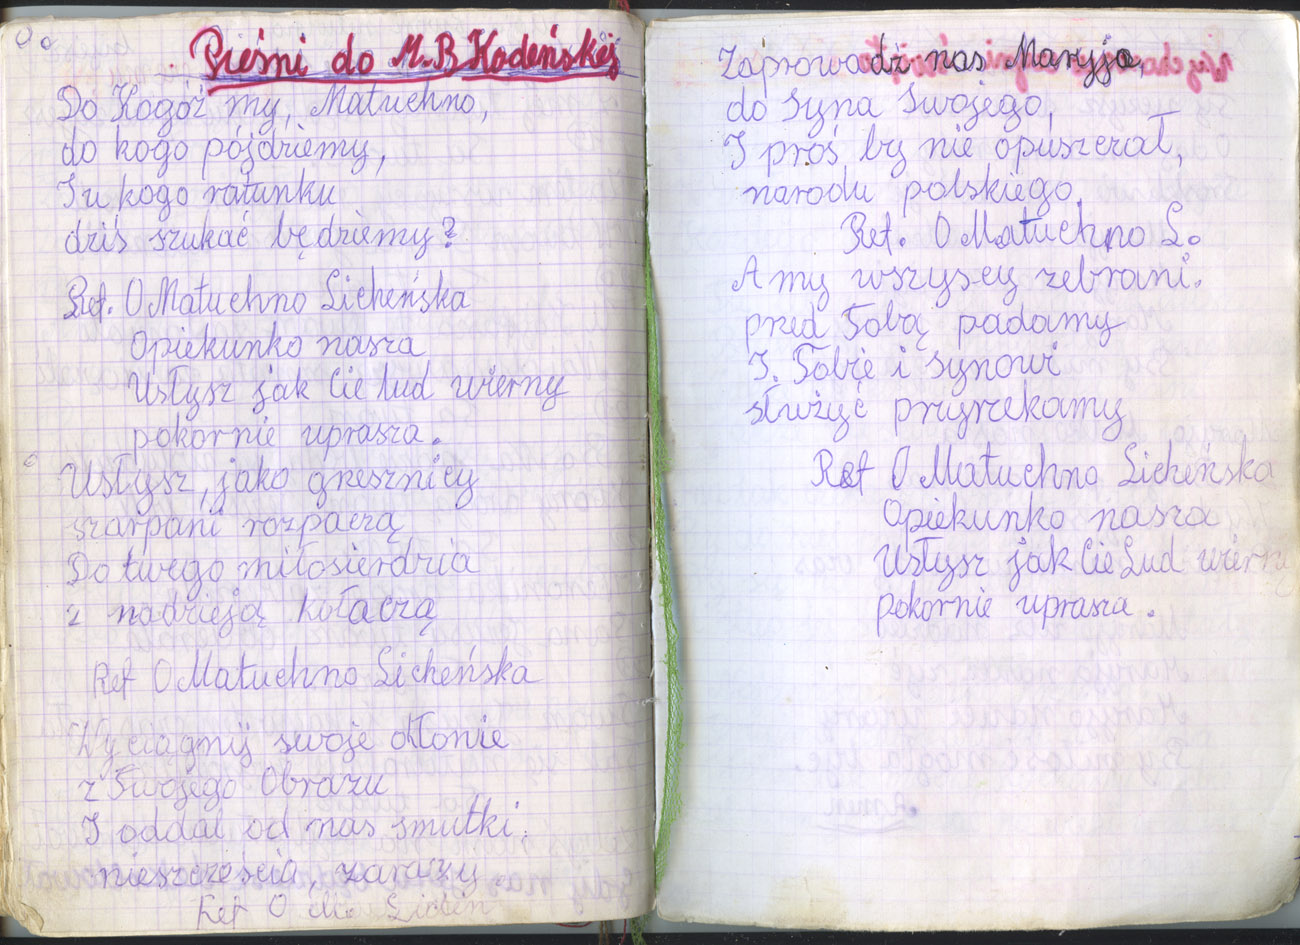 Pieśni do M.B Kodeńskiej
Do Kogóż my, Matuchno,
do kogo pójdziemy,
I u kogo ratunku
dziś szukać będziemy?
Ref. O Matuchno Licheńska
Opiekunko nasza
Usłysz jak Cie lud wierny
pokornie uprasza.
Usłysz, jako grzesznicy
szarpani rozpaczą
Do twego miłosierdzia
z nadzieją kołaczą
Ref O Matuchno Licheńska
Wyciągnij swoje dłonie
z Twojego Obrazu
I oddal od nas smutki.
nieszczęścia, zarazy
Ref O M. Lichen
Zaprowadź nas Maryjo,
do Syna Swojego,
I proś by nie opuszczał,
narodu polskiego.
Ref. O Matuchno L.
A my wszyscy zebrani.
pred Tobą padamy
I. Tobie i synowi
służyć przyrzekamy
Ref O Matuchno Licheńska
Opiekunko nasza
Usłysz jak Cie Lud wierny
pokornie uprasza.